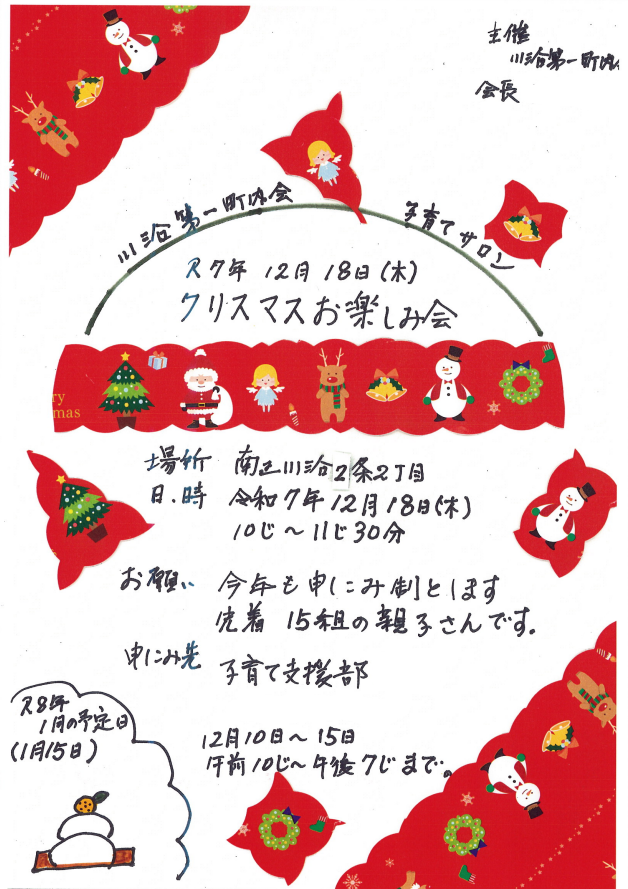 主催
川沿第一町内
会長
川沿第一町内会 子育てサロン
R7年 12月18日(木)
クリスマスお楽しみ会
ry
mas
場所 南区川沿2条2丁目
日.時 令和7年12月18日(木)
10じ〜11じ30分
お願い 今年も申しこみ制とします
先着 15組の親子さんです。
申しこみ先 子育て支援部
12月10日〜15日
午前10じ〜午後7じまで。
R8年
1月の予定日
(1月15日)